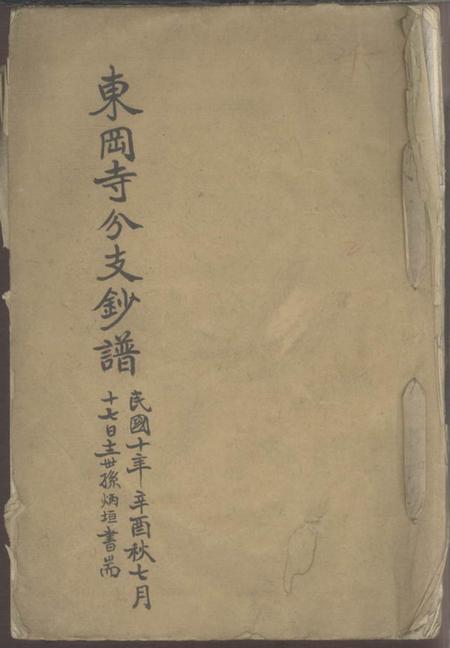 東岡寺分支鈔譜
民國十年辛酉秋七月
十七日主世孫炳垣書耑